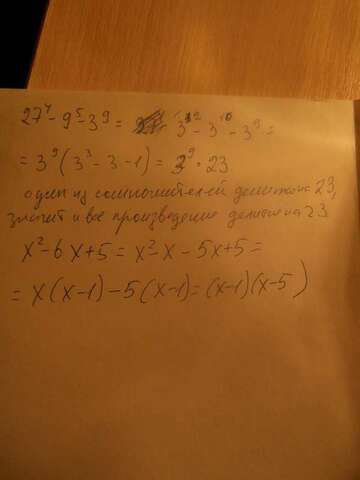 27⁴ - 9⁵ - 3⁹ = 3¹² - 3¹⁰ - 3⁹ =
= 3⁹(3³ - 3 - 1) = 3⁹ · 23
один из сомножителей делится на 23,
значит и все произведение делится на 23
x² - 6x + 5 = x² - x - 5x + 5 =
= x(x-1) - 5(x-1) = (x-1)(x-5)